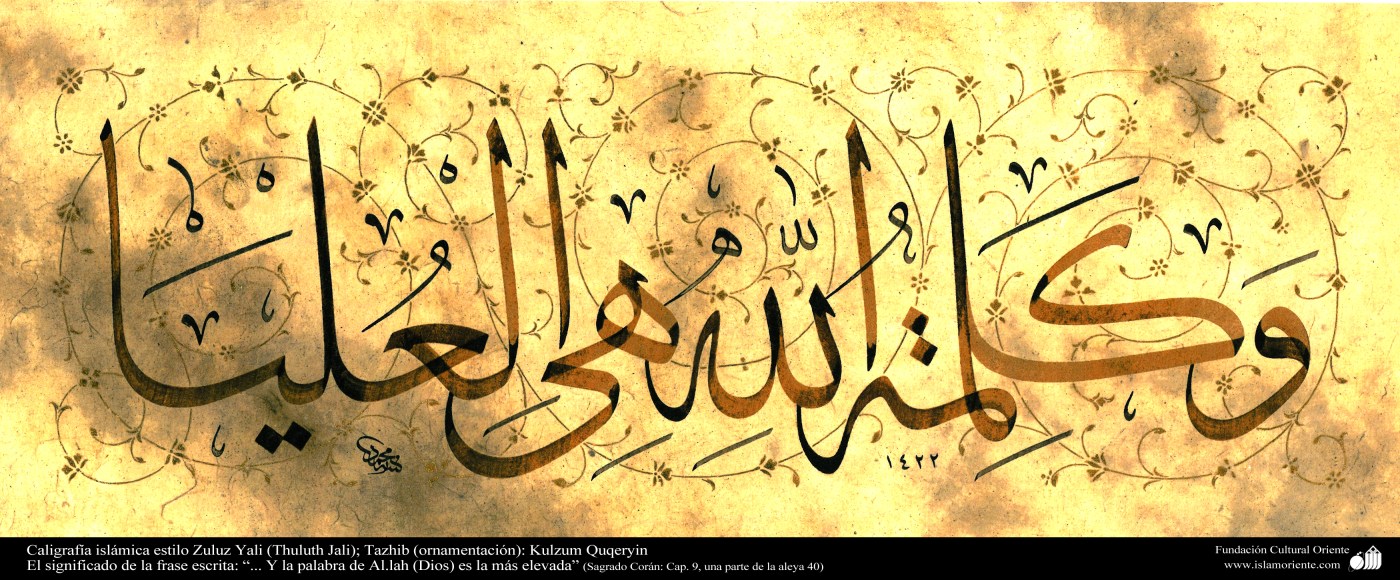 وَكَلِمَةُ اللّٰهِ هِيَ الْعُلْيَا
١٤٢٢
Caligrafía islámica estilo Zuluz Yali (Thuluth Jali); Tazhib (ornamentación): Kulzum Quqeryin
El significado de la frase escrita: “... Y la palabra de Al.lah (Dios) es la más elevada” (Sagrado Corán: Cap. 9, una parte de la aleya 40)
Fundación Cultural Oriente
www.islamoriente.com